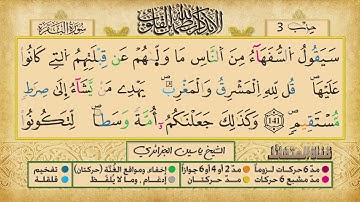 أَلَا بِذِكْرِ اللَّهِ تَطْمَئِنُّ الْقُلُوبُ
سُورَةُ الْبَقَرَةِ
حزب 3
سَيَقُولُ السُّفَهَآءُ مِنَ النَّاسِ مَا وَلَّىٰهُمْ عَن قِبْلَتِهِمُ الَّتِي كَانُوا
عَلَيْهَا قُل لِّلَّهِ الْمَشْرِقُ وَالْمَغْرِبُ يَهْدِي مَن يَّشَآءُ إِلَىٰ صِرَٰطٍ
مُّسْتَقِيمٍ 141 وَكَذَٰلِكَ جَعَلْنَٰكُمْ أُمَّةً وَسَطًا لِّتَكُونُوا
الشيخ ياسين الجزائري
مدّ 6 حركات لزوماً مدّ 2 أو 4 أو 6 جوازاً إخفاء، ومواقع الغُنَّة (حركتان) تفخيم
مدّ مشبع 6 حركات مدّ حركتان إدغام، وما لا يُلفظ قلقلة